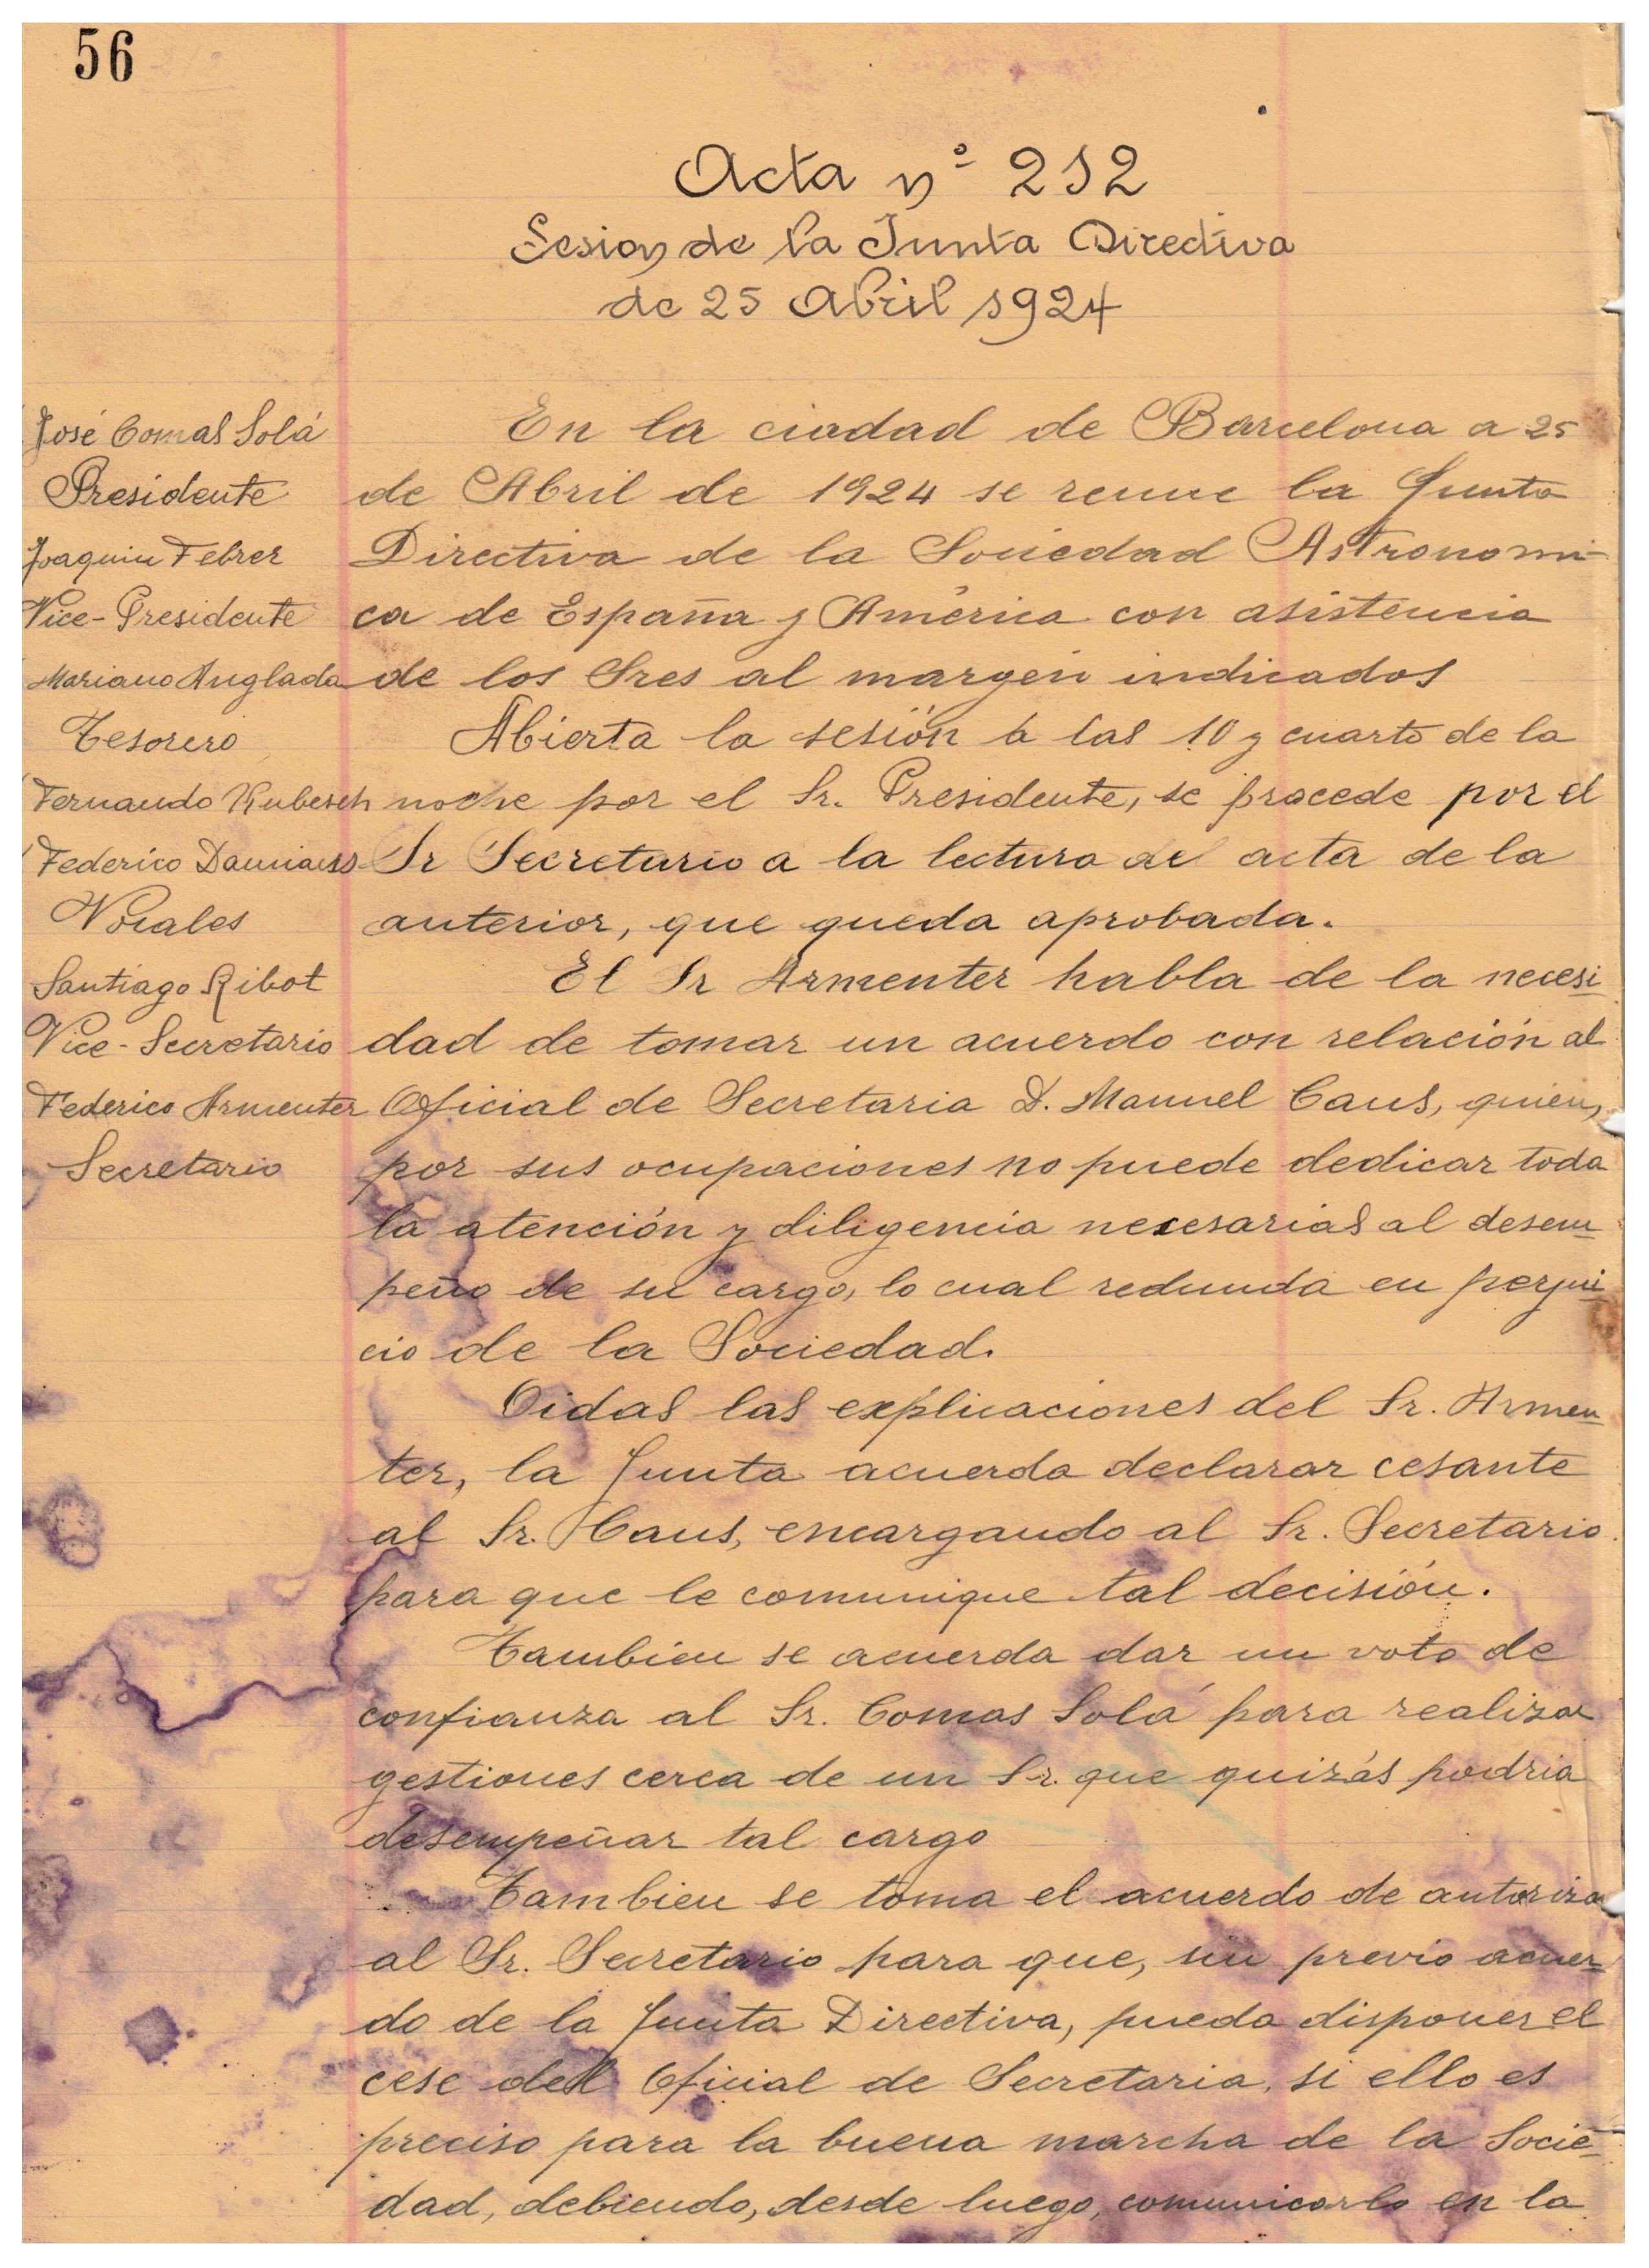 56
Acta nº 212
Sesion de la Junta Directiva
de 25 Abril 1924
José Comas Solá
Presidente
Joaquin Febrer
Vice-Presidente
Mariano Anglada
Tesorero
Fernando Kubesch
Federico Damians
Vocales
Santiago Ribot
Vice-Secretario
Federico Armenter
Secretario
En la ciudad de Barcelona a 25
de Abril de 1924 se reune la Junta
Directiva de la Sociedad Astronomi-
ca de España y América con asistencia
de los Sres al margen indicados
Abierta la sesión a las 10 y cuarto de la
noche por el Sr. Presidente, se procede por el
Sr Secretario a la lectura del acta de la
anterior, que queda aprobada.
El Sr Armenter habla de la necesi
dad de tomar un acuerdo con relación al
Oficial de Secretaria D. Manuel Caus, quien,
por sus ocupaciones no puede dedicar toda
la atención y diligencia necesarias al desem
peño de su cargo, lo cual redunda en perjui
cio de la Sociedad.
Oidas las explicaciones del Sr. Armen
ter, la Junta acuerda declarar cesante
al Sr. Caus, encargando al Sr. Secretario
para que le comunique tal decisión.
Tambien se acuerda dar un voto de
confianza al Sr. Comas Solá para realizar
gestiones cerca de un Sr. que quizás podria
desempeñar tal cargo
Tambien se toma el acuerdo de autoriza
al Sr. Secretario para que, sin previo acuer-
do de la Junta Directiva, pueda disponer el
cese del Oficial de Secretaria, si ello es
preciso para la buena marcha de la Socie-
dad, debiendo, desde luego, comunicarlo en la